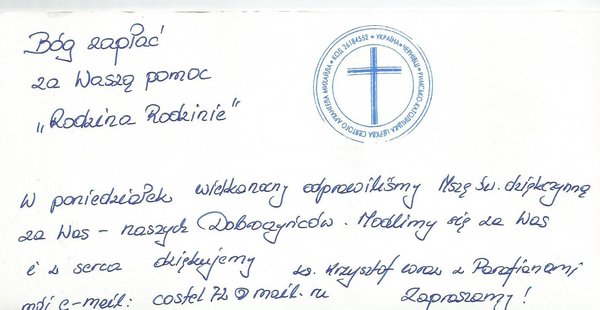 Bóg zapłać
za Waszą pomoc
„Rodzina Rodzinie"
• КОД 26184552 • УКРАЇНА • ЧЕРНІВЦІ • РИМСЬКО-КАТОЛИЦЬКА ЦЕРКВА СВЯТОГО АРХАНГЕЛА МИХАЇЛА
W poniedziałek wielkanocny odprawiliśmy Mszę św. dziękczynną
za Was – naszych Dobroczyńców. Modlimy się za Was
i z serca dziękujemy ks. Krzysztof wraz z Parafianami
mój e-mail: costel72@mail.ru Zapraszamy!